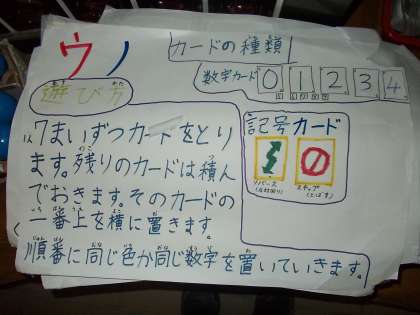 ウノ
遊び方
カードの種類
数字カード 0 1 2 3 4
記号カード
リバース
スキップ
(とばす)
7まいずつカードをとり
ます。残りのカードは積ん
でおきます。そのカードの
一番上を横に置きます
順番に同じ色か同じ数字を置いていきます。